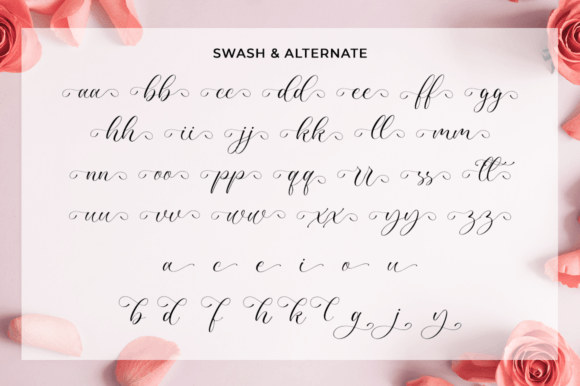 SWASH & ALTERNATE
aa bb cc dd ee ff gg
hh ii jj kk ll mm
nn oo pp qq rr ss tt
uu vv ww xx yy zz
a c e i o u
b d f h k l g j y